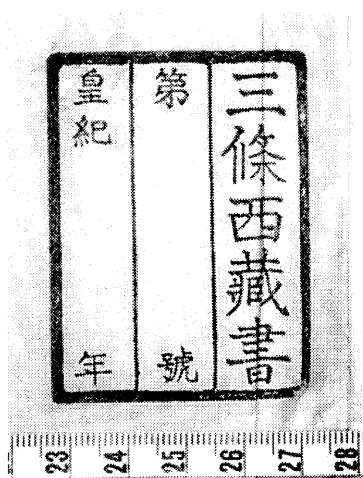 三條西藏書
第 號
皇紀 年
23 24 25 26 27 28